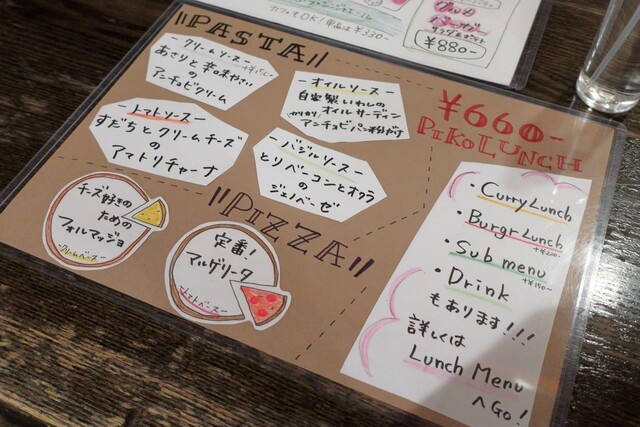 カフェでもOK! 単品は¥330-
¥880-
PASTA
ークリームソースー
あさりと辛味やさい
の
アンチョビクリーム
ーオイルソースー
自家製いわしの
オイルサーディン
カリカリアンチョビパン粉がけ
ートマトソースー
すだちとクリームチーズ
の
アマトリチャーナ
ーバジルソースー
とりベーコンとオクラ
の
ジェノベーゼ
¥660-
PIKO LUNCH
PIZZA
チーズ好きの
ための
フォルマッジョ
クリームベース
定番!
マルゲリータ
トマトベース
・Curry Lunch
・Burgr Lunch
・Sub menu
+¥150~
・Drink
もあります!!!
詳しくは
Lunch Menu
へGo!